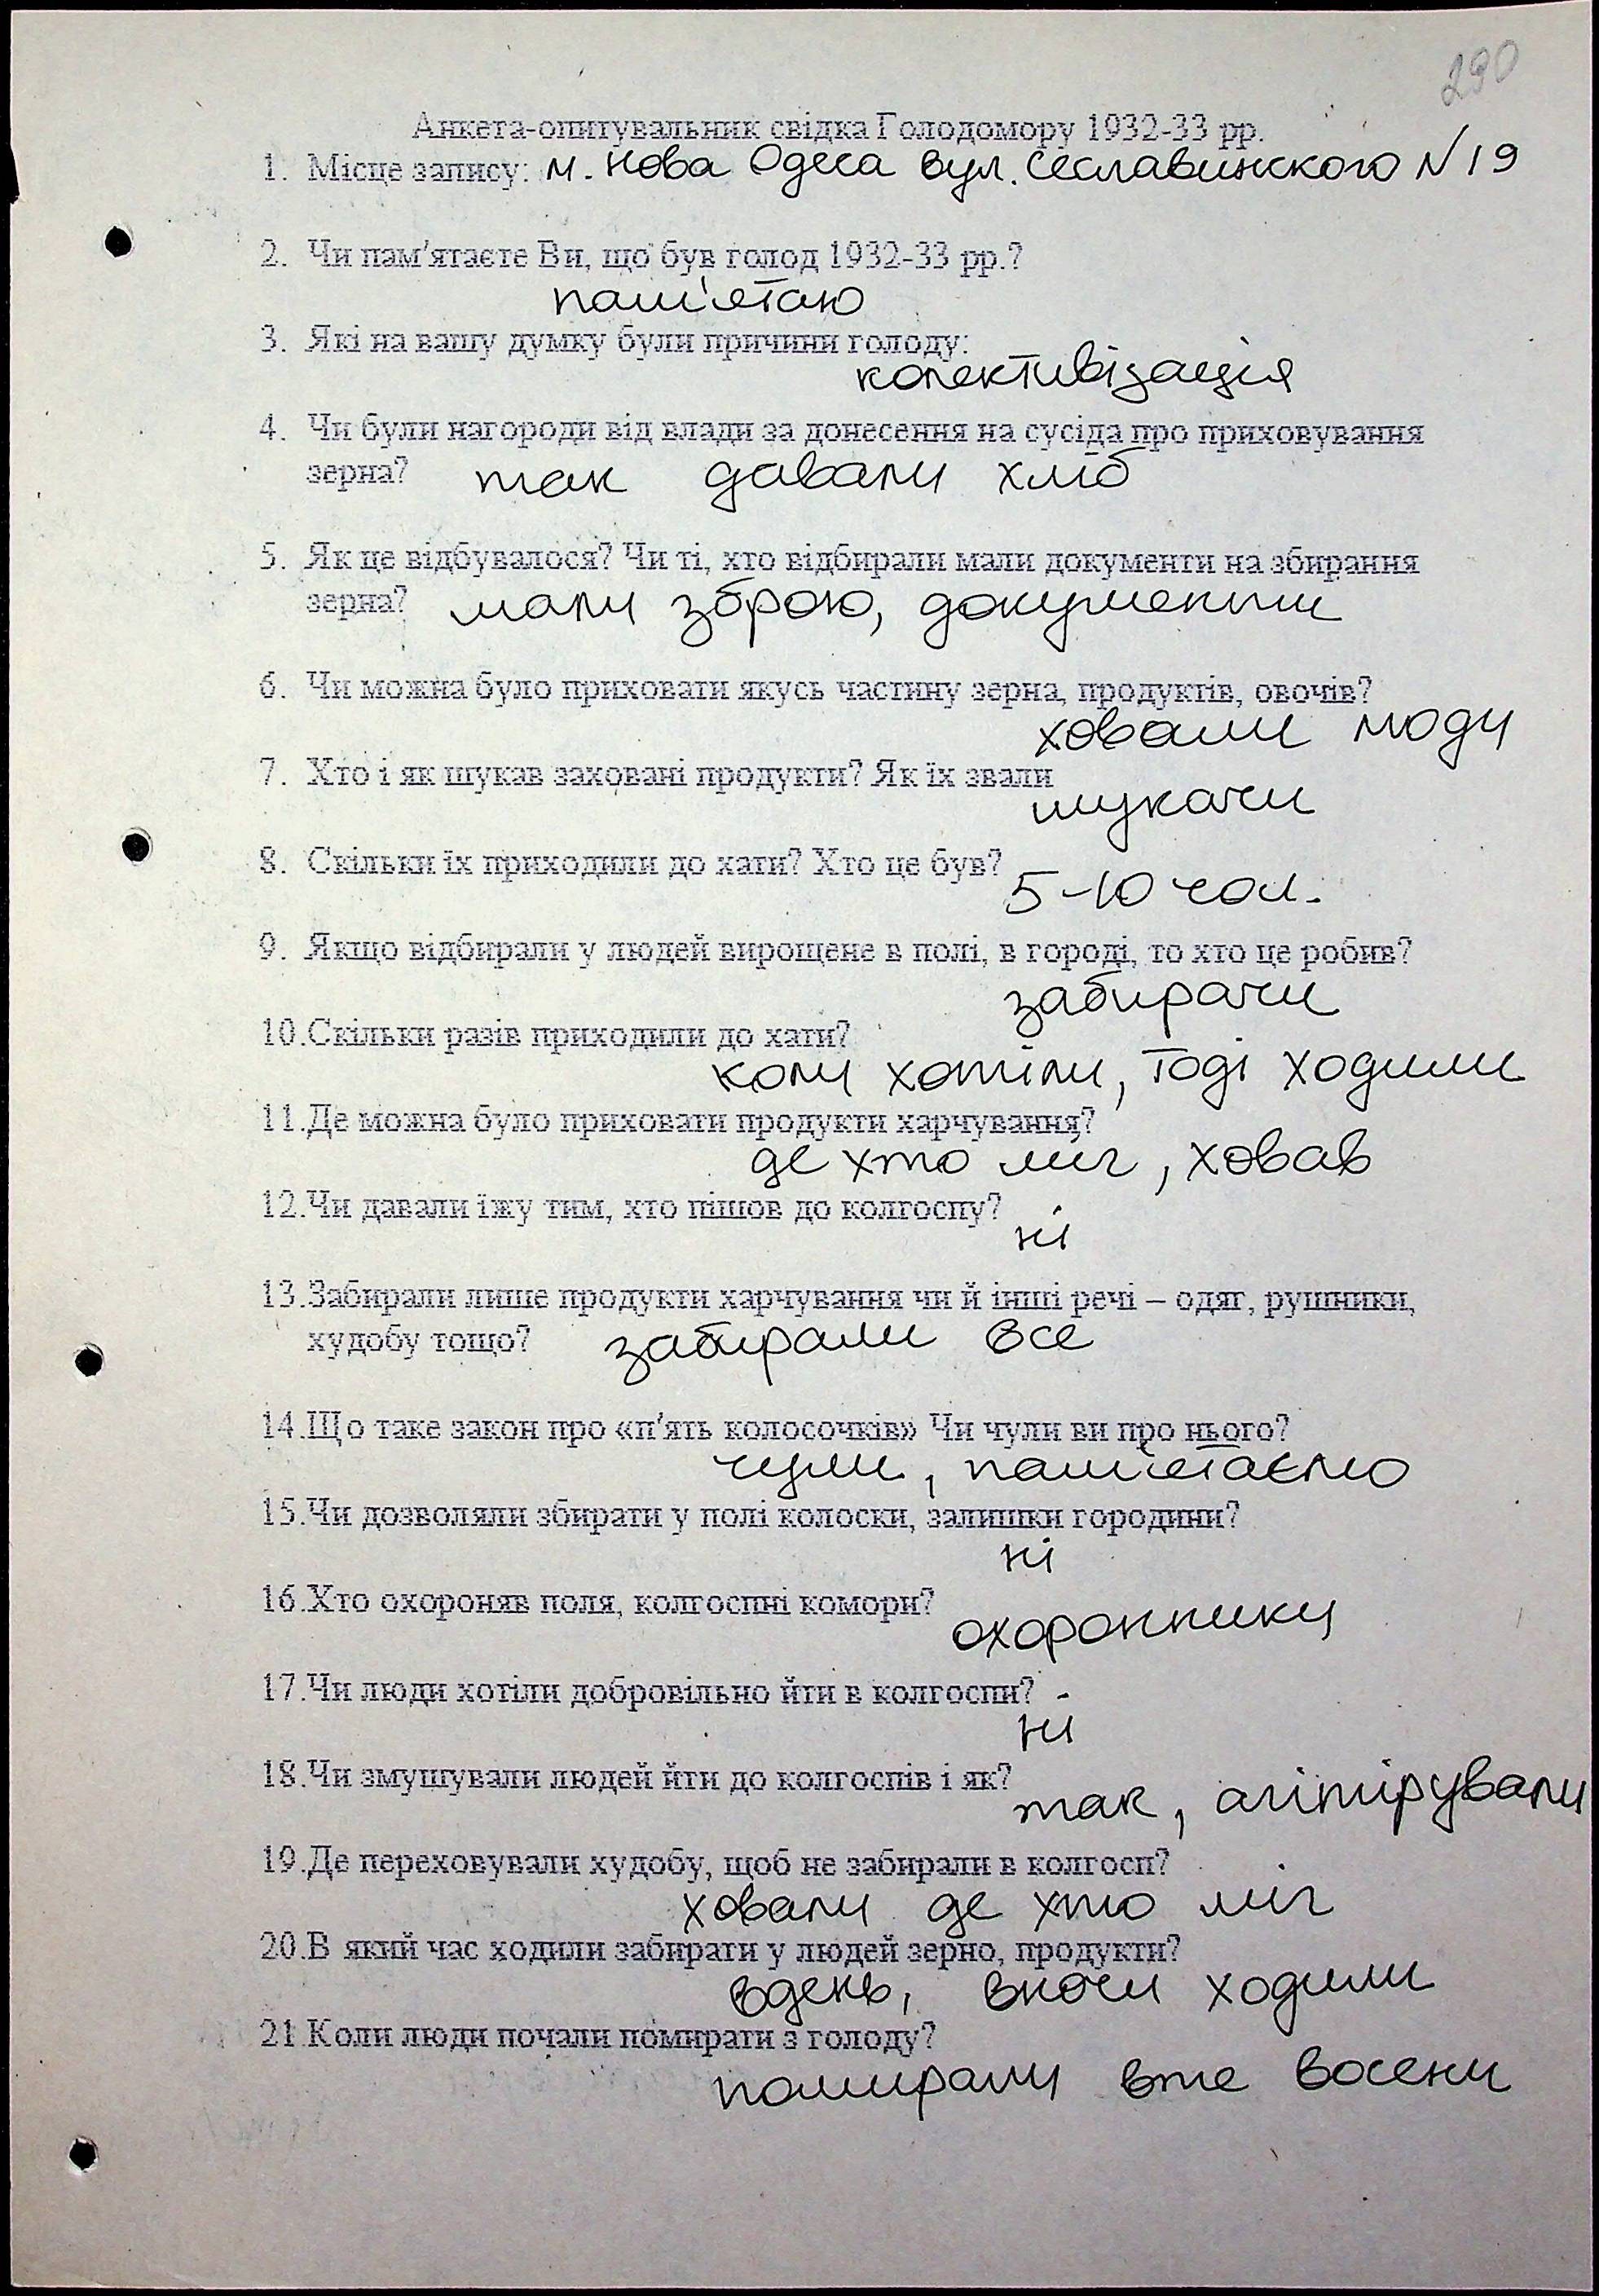 290
Анкета-опитувальник свідка Голодомору 1932-33 рр.
1. Місце запису: м. Нова Одеса вул. Сеславинского №19
2. Чи пам'ятаєте Ви, що був голод 1932-33 рр.?
пам'ятаю
3. Які на вашу думку були причини голоду:
колективізація
4. Чи були нагороди від влади за донесення на сусіда про приховування
зерна? так давали хліб
5. Як це відбувалося? Чи ті, хто відбирали мали документи на збирання
зерна? мали зброю, документи
6. Чи можна було приховати якусь частину зерна, продуктів, овочів?
ховали люди
7. Хто і як шукав заховані продукти? Як їх звали
шукачи
8. Скільки їх приходили до хати? Хто це був?
5-10 чол.
9. Якщо відбирали у людей вирощене в полі, в городі, то хто це робив?
забирачи
10.Скільки разів приходили до хати?
коли хотіли, тоді ходили
11.Де можна було приховати продукти харчування?
де хто міг, ховав
12.Чи давали їжу тим, хто пішов до колгоспу?
ні
13.Забирали лише продукти харчування чи й інші речі – одяг, рушники,
худобу тощо? забирали все
14.Що таке закон про «п'ять колосочків» Чи чули ви про нього?
чули, пам'ятаємо
15.Чи дозволяли збирати у полі колоски, залишки городини?
ні
16.Хто охороняв поля, колгоспні комори?
охоронники
17.Чи люди хотіли добровільно йти в колгоспи?
ні
18.Чи змушували людей йти до колгоспів і як?
так, агітірували
19.Де переховували худобу, щоб не забирали в колгосп?
ховали де хто міг
20.В який час ходили забирати у людей зерно, продукти?
вдень, вночи ходили
21.Коли люди почали помирати з голоду?
помирали вже восени